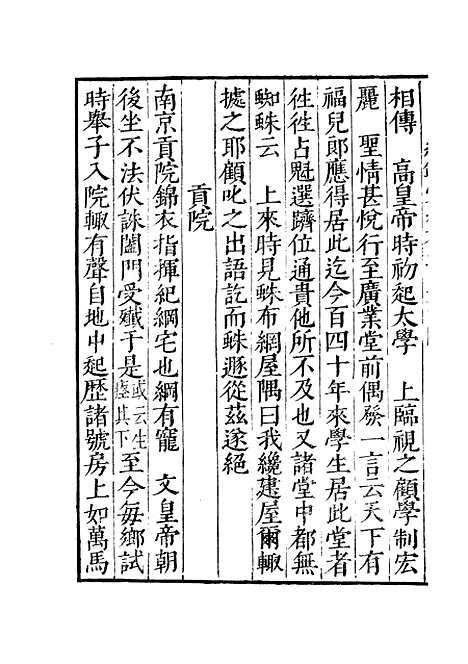 相傳　高皇帝時初起太學　上臨視之顧學制宏
麗　聖情甚悅行至廣業堂前偶發一言云天下有
福兒郎應得居此迄今百四十年來學生居此堂者
徃徃占魁選躋位通貴他所不及也又諸堂中都無
蜘蛛云　上來時見蛛布網屋隅曰我纔建屋爾輙
據之耶顧叱之出語訖而蛛遯從茲遂絕
貢院
南京貢院錦衣指揮紀綱宅也綱有寵　文皇帝朝
後坐不法伏誅闔門受殱于是或云生瘞其下至今每鄉試
時舉子入院輙有聲自地中起歷諸號房上如萬馬